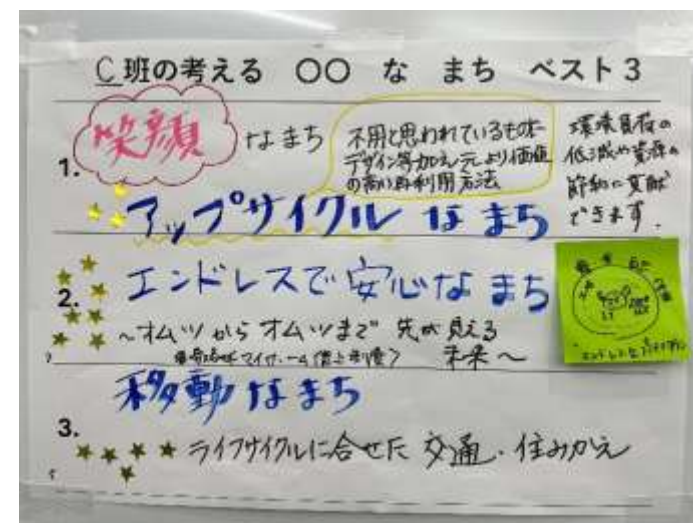 C班の考える 〇〇 な まち ベスト3
笑顔 なまち
不用と思われているものに
デザイン等加え元より価値
の高い再利用方法
環境負荷の
低減や資源の
節約に貢献
できます.
1.
アップサイクル な まち
2.
エンドレスで安心なまち
~オムツからオムツまで 先が見える
未来~
移動なまち
3.
ライフサイクルに合せた 交通・住みかえ